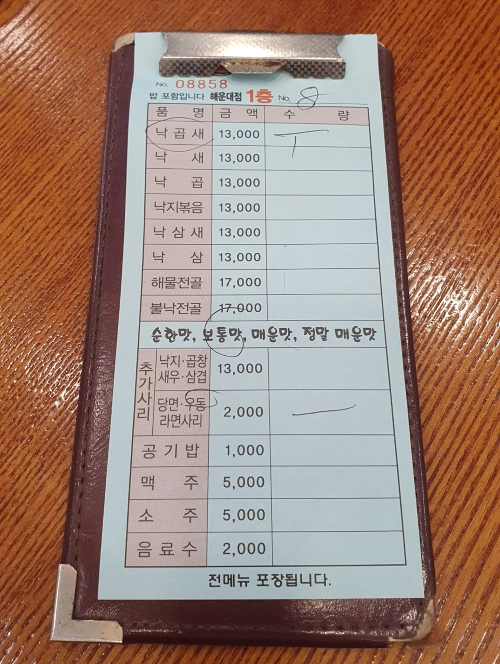 No. 08858
밥 포함입니다 해운대점 1층 No. 8
품 명 금 액 수 량
낙 곱 새 13,000 T
낙 새 13,000
낙 곱 13,000
낙지볶음 13,000
낙 삼 새 13,000
낙 삼 13,000
해물전골 17,000
불낙전골 17,000
순한맛, 보통맛, 매운맛, 정말 매운맛
추가사리
낙지·곱창
새우·삼겹
13,000
당면·우동
라면사리
2,000 一
공 기 밥 1,000
맥 주 5,000
소 주 5,000
음 료 수 2,000
전메뉴 포장됩니다.